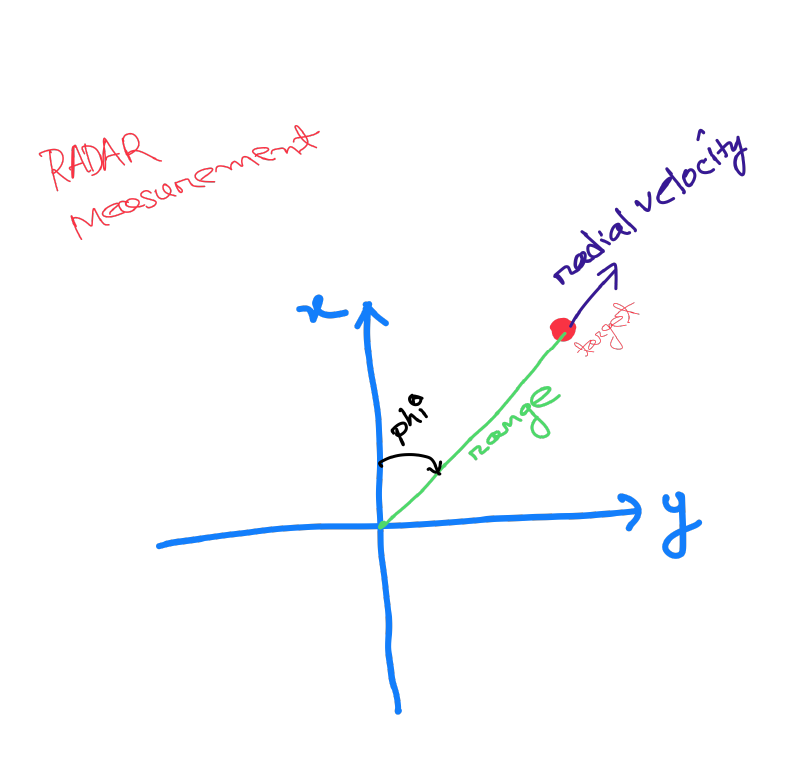 RADAR
Measurement
radial velocity
target
x
phi
range
y